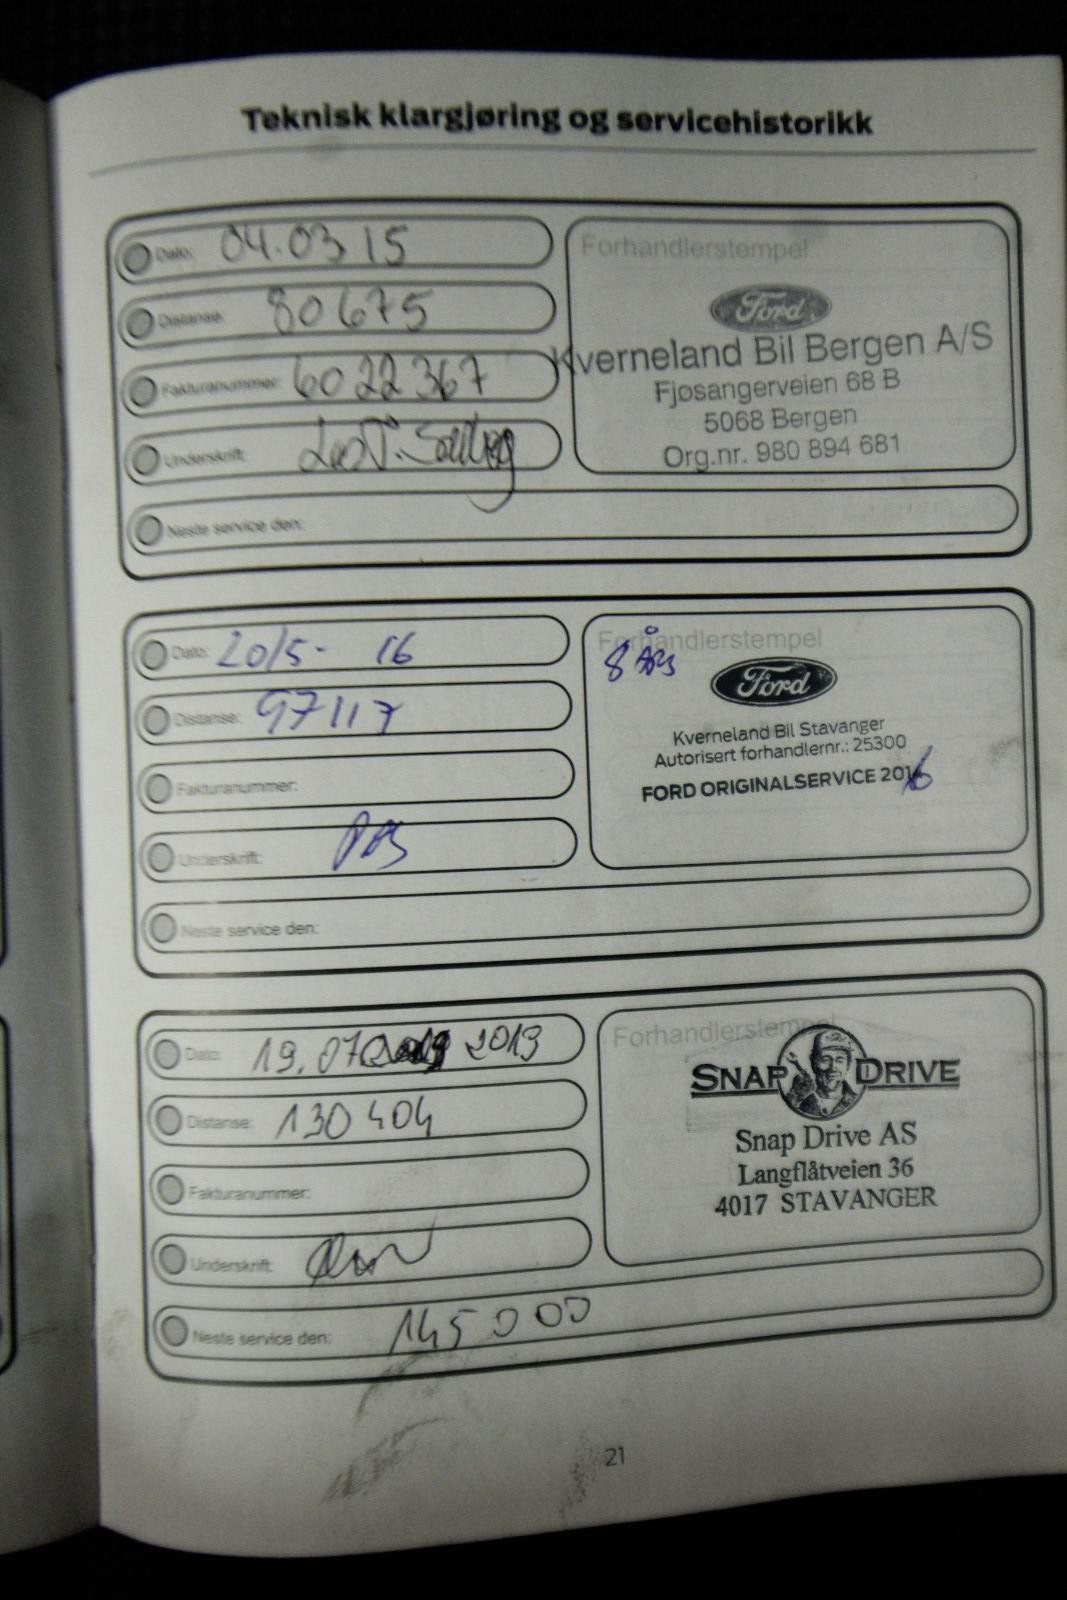 Teknisk klargjøring og servicehistorikk
Dato: 04.03 15
Distanse: 80675
Fakturanummer: 6022367
Underskrift:
Neste service den:
Forhandlerstempel
Ford
Kverneland Bil Bergen A/S
Fjøsangerveien 68 B
5068 Bergen
Org.nr. 980 894 681
Dato: 20/5- 16
Distanse: 97117
Fakturanummer:
Underskrift:
Neste service den:
Forhandlerstempel
8 års
Ford
Kverneland Bil Stavanger
Autorisert forhandlernr.: 25300
FORD ORIGINALSERVICE 2016
Dato: 19.07 2019
Distanse: 130 404
Fakturanummer:
Underskrift:
Neste service den: 145 000
Forhandlerstempel
SNAP DRIVE
Snap Drive AS
Langflåtveien 36
4017 STAVANGER
21